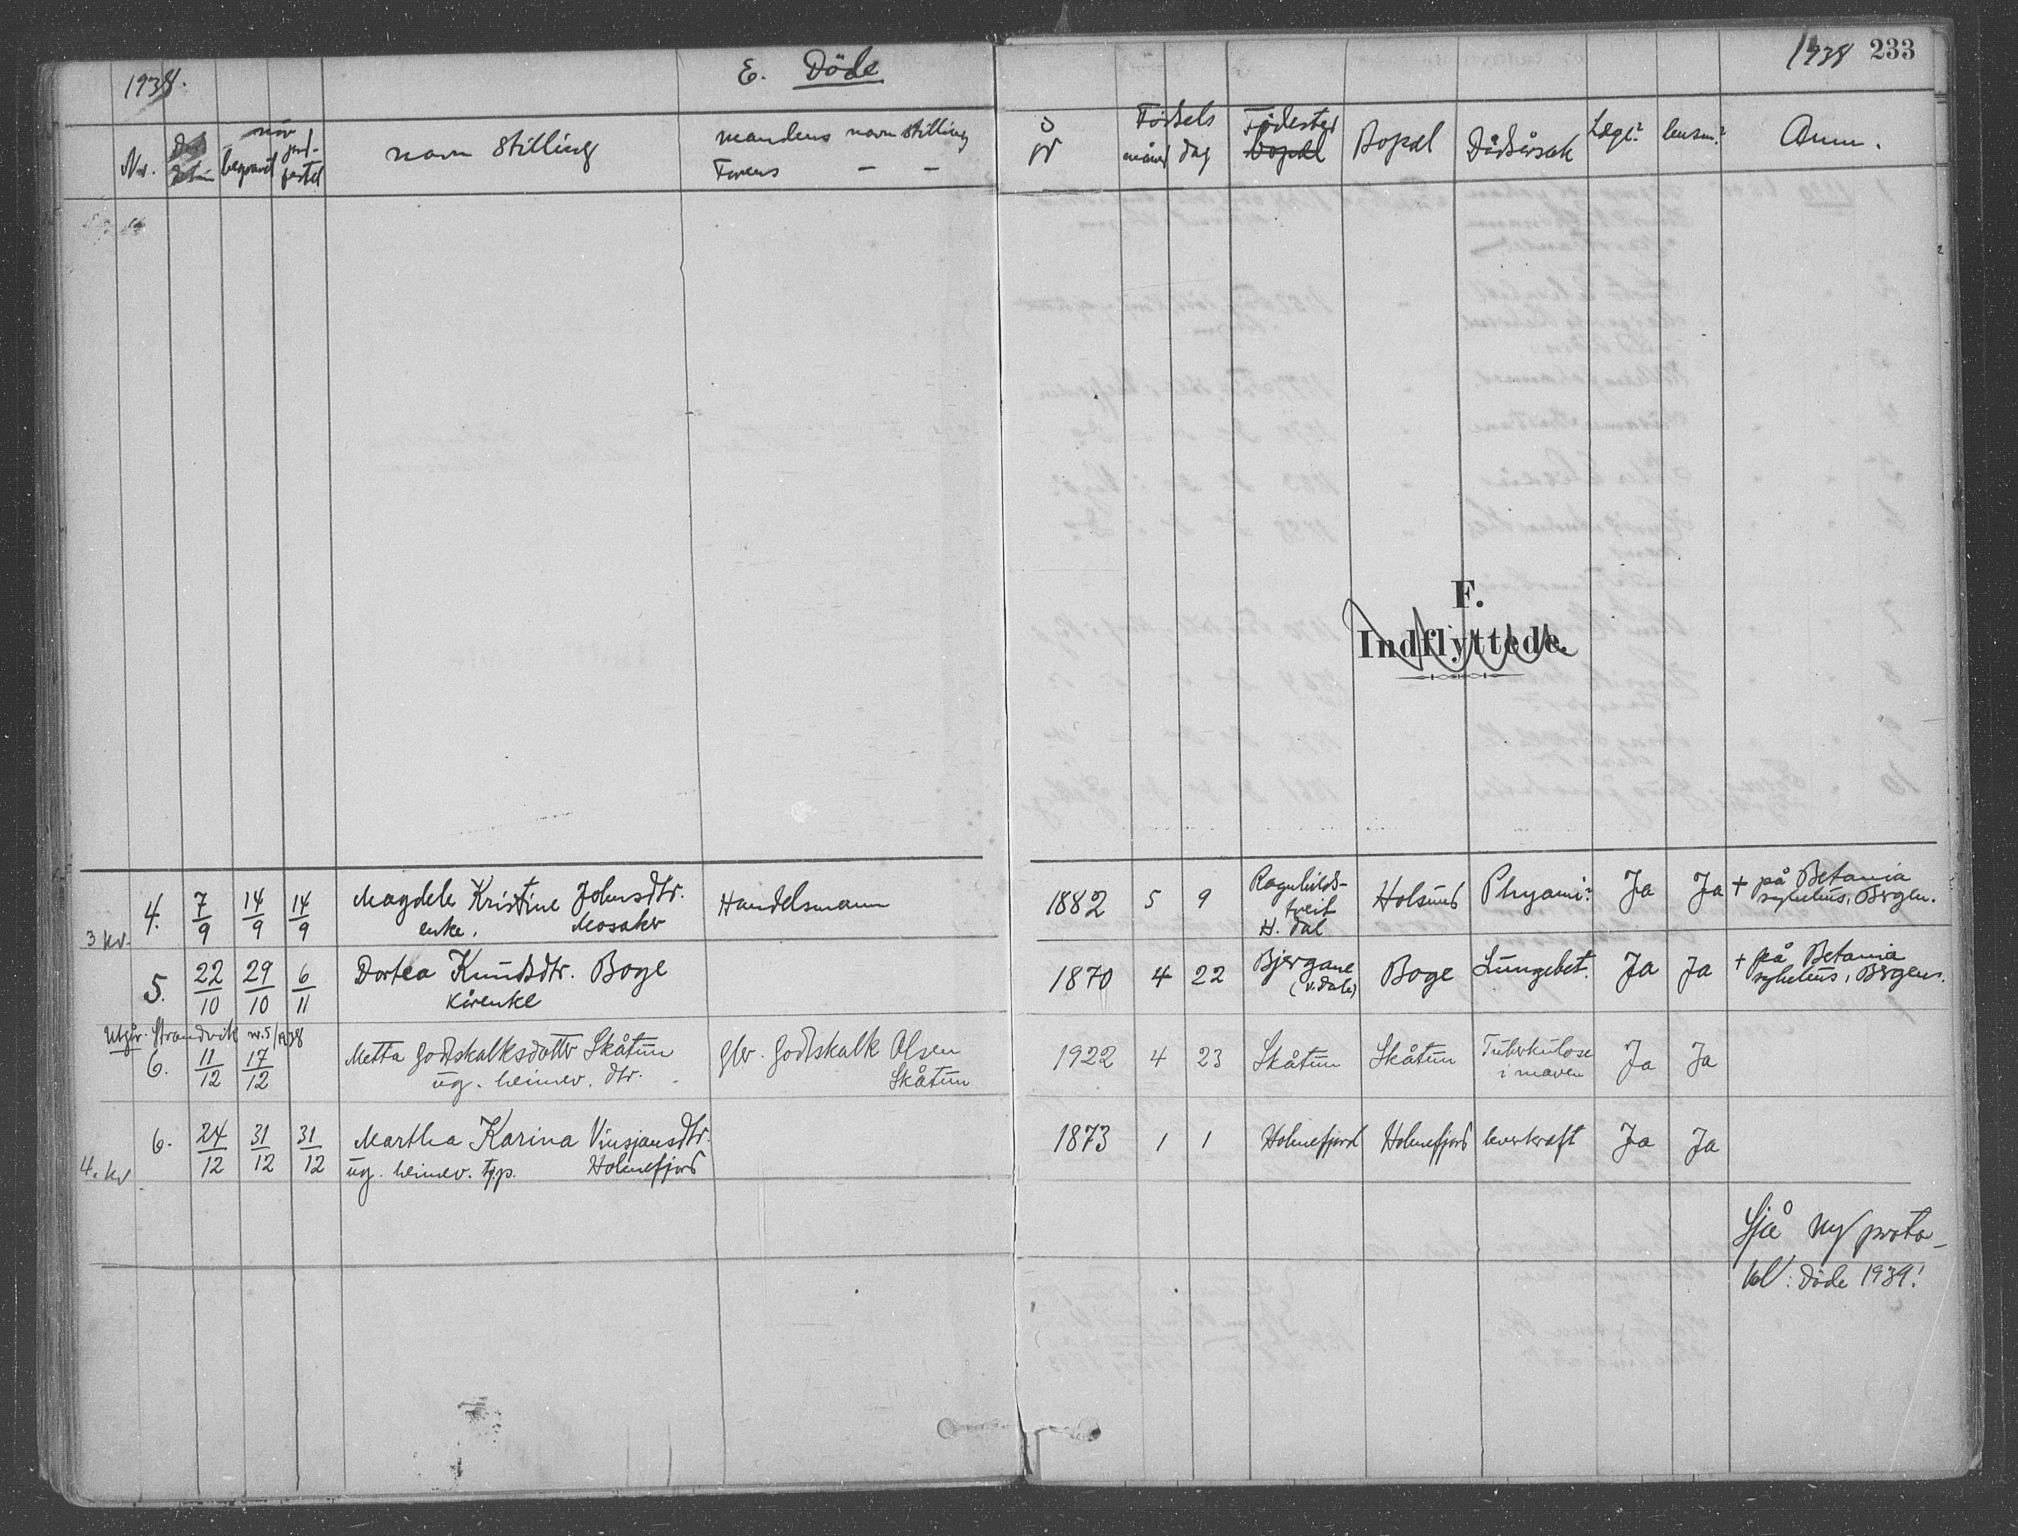 1938.
E. Döde
1938 233
Nr.
Död
begravet
når
jord-
festet
navn stilling
mandens navn stilling
Farens — —
år
Fødsels
måned dag
Fødested
bopæl
Bopæl
Dødsårsak
Læge?
lensm?
Anm.
F.
Indflyttede.
3 kv.
4. 7/9 14/9 14/9 Magdele Kristine Johnsdtr. Handelsmann 1882 5 9 Ragnhilds- Holsund Phyami? Ja Ja + på Betania
enke. Mosaker tveit sykehus, Bergen.
H. dal
5. 22/10 29/10 6/11 Dortea Knudsdtr. Boge 1870 4 22 Bjørgane Boge Lungebet. Ja Ja + på Betania
kårenke (v. Dale) sykehus, Bergen.
Utgår. Strandvik nr. 5/1938
6. 11/12 17/12 Metta Godtskalksdotter Skåtun gbr. Godtskalk Olsen 1922 4 23 Skåtun Skåtun Tuberkulose Ja Ja
ug. heimev. dtr. Skåtun i maven
6. 24/12 31/12 31/12 Martha Karina Vinsjansdtr. 1873 1 1 Holmefjord Holmefjord leverkræft Ja Ja
4. kv ug. heimev. Holmefjord
Sjå ny proto-
kol: Döde 1939!